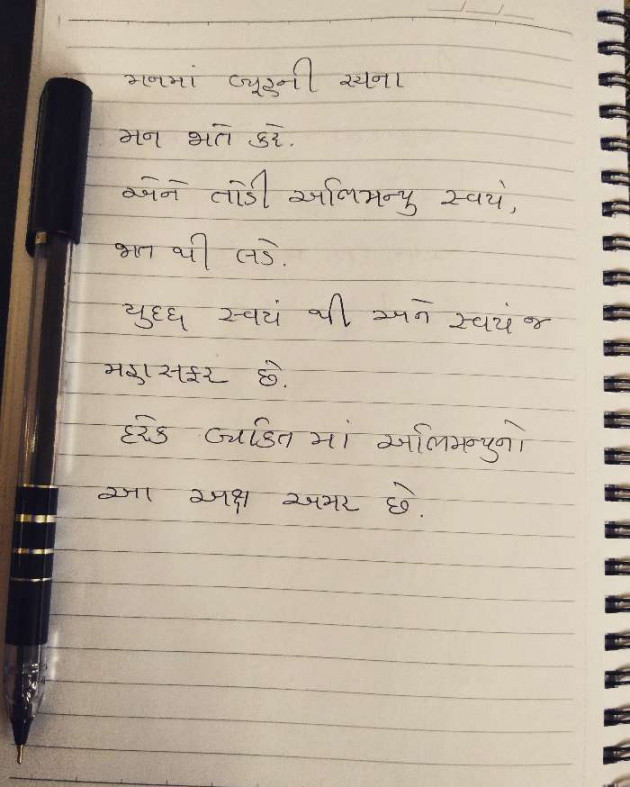 મનમાં વ્યૂહની રચના
મન ભતે કરે.
એને તોડી અભિમન્યુ સ્વયં,
જાત થી લડે.
યુદ્ધ સ્વયં થી અને સ્વયં જ
મહાસફર છે.
દરેક વ્યકિત માં અભિમન્યુનો
આ અક્ષ અમર છે.